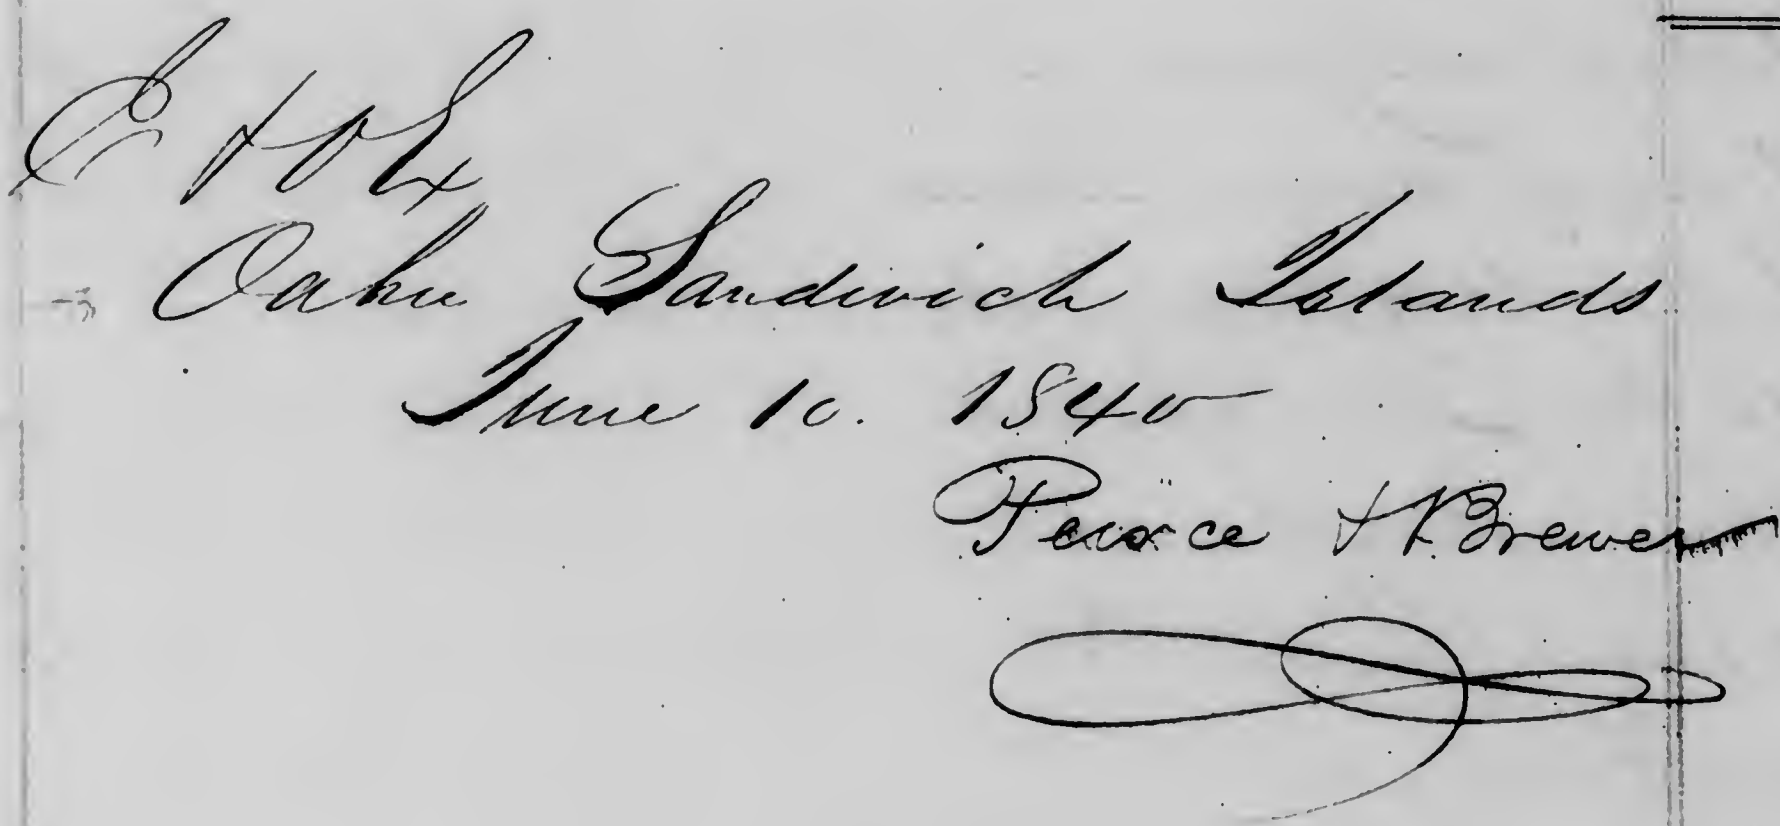 E & O Ex
Oahu Sandwich Islands
June 10. 1840
Peirce & Brewer